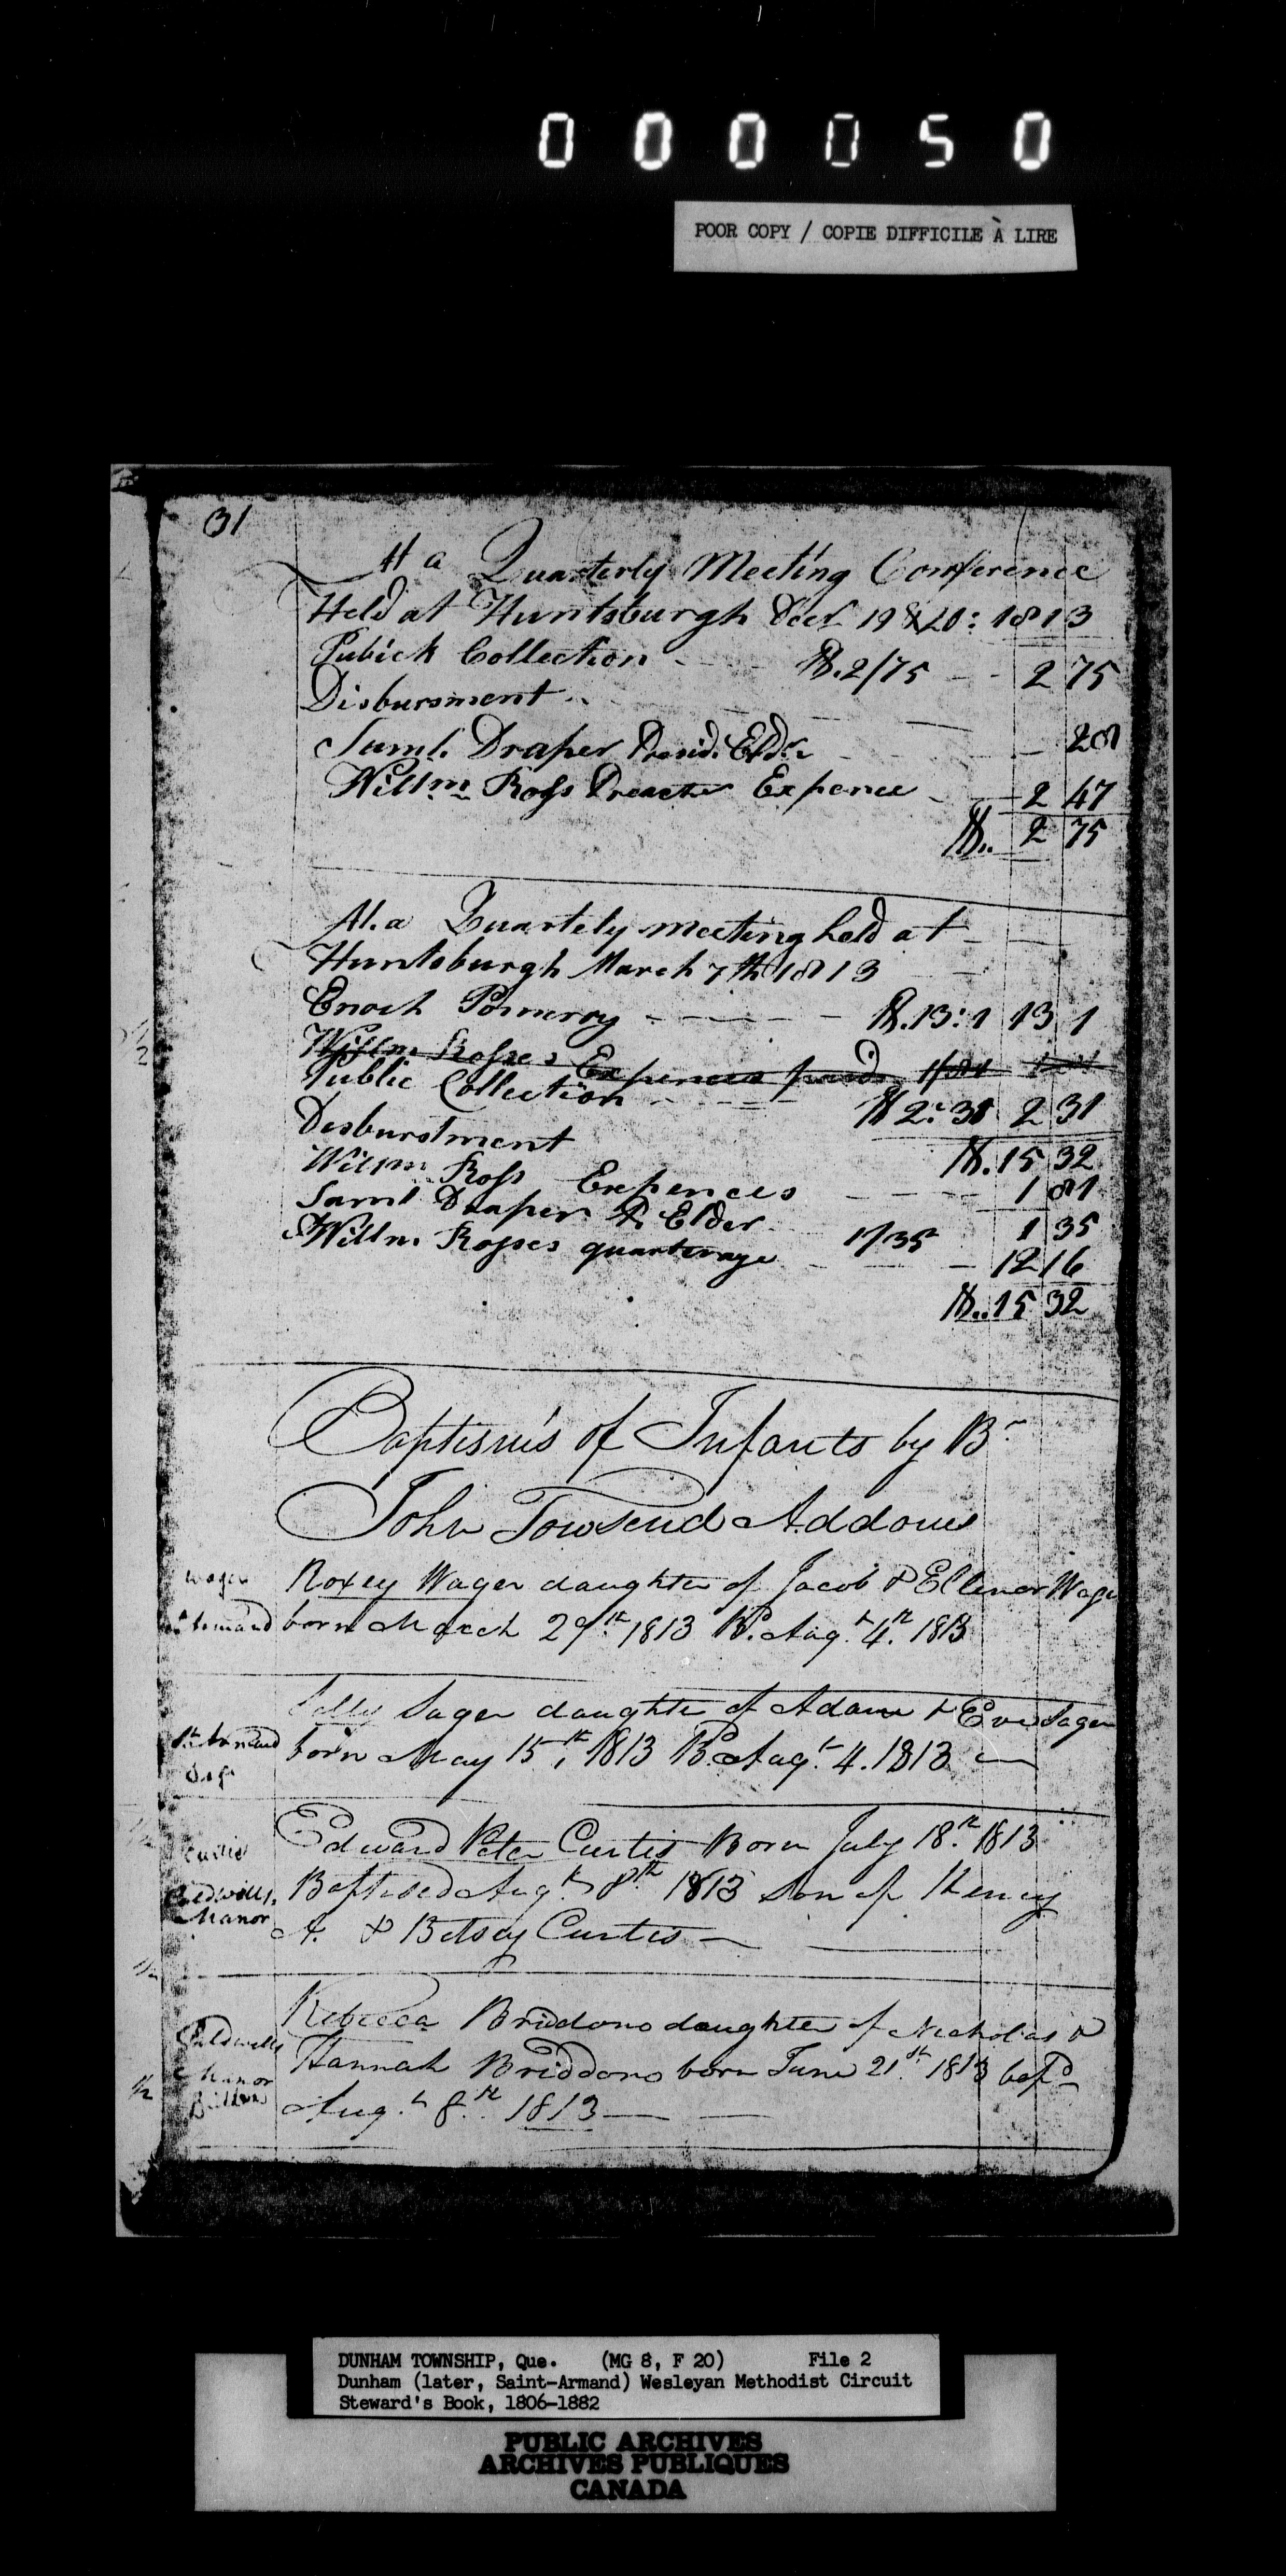 000050
POOR COPY / COPIE DIFFICILE À LIRE
31
At a Quarterly Meeting Conference
Held at Huntsburgh Decr 19 & 20: 1813
Publick Collection $.2/75 2 75
Disbursment
Saml. Draper Presid. Eldr. 28
Willm Ross Preacher Expence 2 47
$.. 2 75
At. a Quartely meeting held at
Huntsburgh March 7th 1813
Enoch Pomeroy $.13:1 13 1
Willm Rosses Expences paid 1/81
Public Collection $2:31 2 31
Disburstment $.15 32
Willm Ross Expences 1 81
Saml Draper P. Elder 1/35 1 35
Willm. Rosses quarterage 12 16
$..15 32
Baptisms of Infants by Br
John Towsend Addoms
Wager Roxey Wager daughter of Jacob & Ellenor Wager
St Armand born March 29th 1813 Bd. Augt. 4th. 1813
Sally Sager daughter of Adam & Eve Sager
St Armand born May 15th, 1813 Bd. Augt. 4. 1813
Sagr
Curtis Edward Peter Curtis Born July 18th 1813
Caldwells Baptised Augt 8th 1813 Son of Henry
Manor A. & Betsey Curtis
Rebecca Briddono daughter of Nicholas &
Caldwells Hannah Briddono born June 21st. 1813 bapd
Manor
Augt. 8th 1813
DUNHAM TOWNSHIP, Que. (MG 8, F 20) File 2
Dunham (later, Saint-Armand) Wesleyan Methodist Circuit
Steward's Book, 1806-1882
PUBLIC ARCHIVES
ARCHIVES PUBLIQUES
CANADA